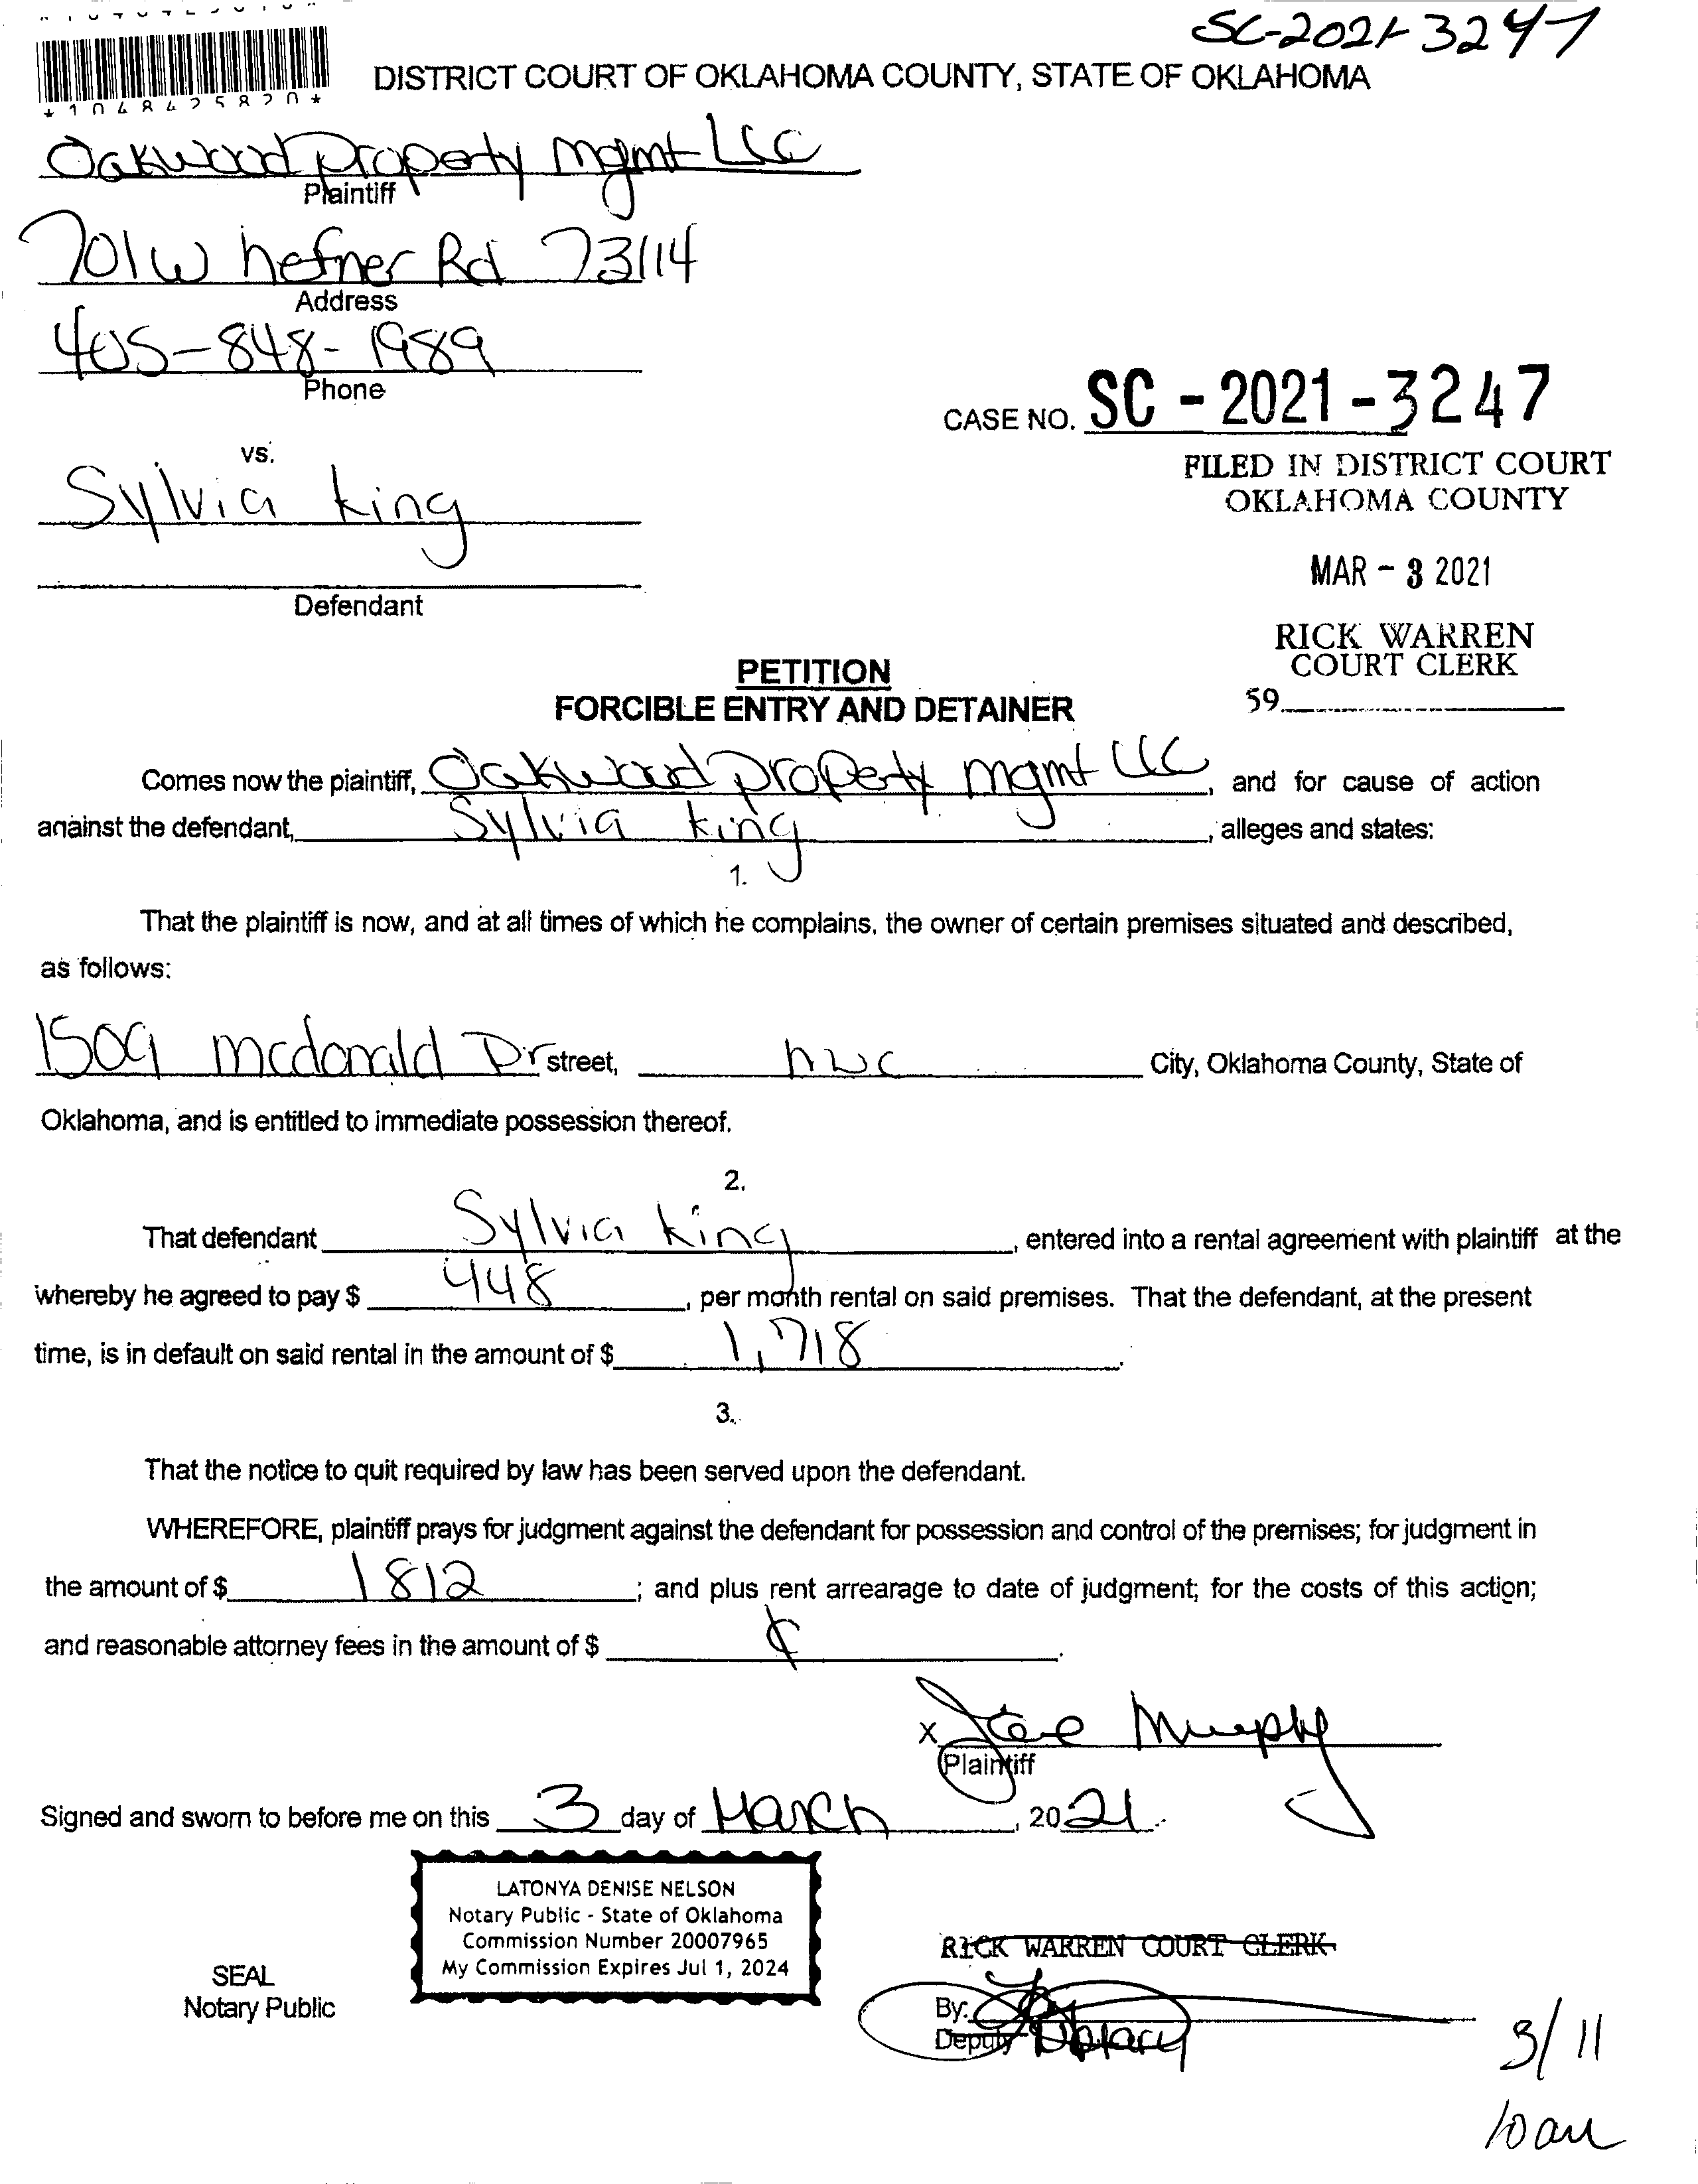 SC-2021-3247
*1048425820*
DISTRICT COURT OF OKLAHOMA COUNTY, STATE OF OKLAHOMA
Oakwood property mgmt LLC
Plaintiff
701 W hefner Rd 73114
Address
405-848-1989
Phone
CASE NO. SC - 2021 - 3247
vs.
FILED IN DISTRICT COURT
OKLAHOMA COUNTY
Sylvia King
MAR - 3 2021
Defendant
RICK WARREN
COURT CLERK
59
PETITION
FORCIBLE ENTRY AND DETAINER
Comes now the plaintiff, Oakwood property mgmt LLC, and for cause of action
against the defendant, Sylvia King, alleges and states:
1.
That the plaintiff is now, and at all times of which he complains, the owner of certain premises situated and described,
as follows:
1509 mcdonald Dr street, nwc City, Oklahoma County, State of
Oklahoma, and is entitled to immediate possession thereof.
2.
That defendant Sylvia King, entered into a rental agreement with plaintiff at the
whereby he agreed to pay $ 448, per month rental on said premises. That the defendant, at the present
time, is in default on said rental in the amount of $ 1,718.
3.
That the notice to quit required by law has been served upon the defendant.
WHEREFORE, plaintiff prays for judgment against the defendant for possession and control of the premises; for judgment in
the amount of $ 1812; and plus rent arrearage to date of judgment; for the costs of this action;
and reasonable attorney fees in the amount of $
X Murphy
Plaintiff
Signed and sworn to before me on this 3 day of March, 2021.
LATONYA DENISE NELSON
Notary Public - State of Oklahoma
Commission Number 20007965
My Commission Expires Jul 1, 2024
SEAL
Notary Public
RICK WARREN COURT CLERK
By:
Deputy Notary
3/11
10am